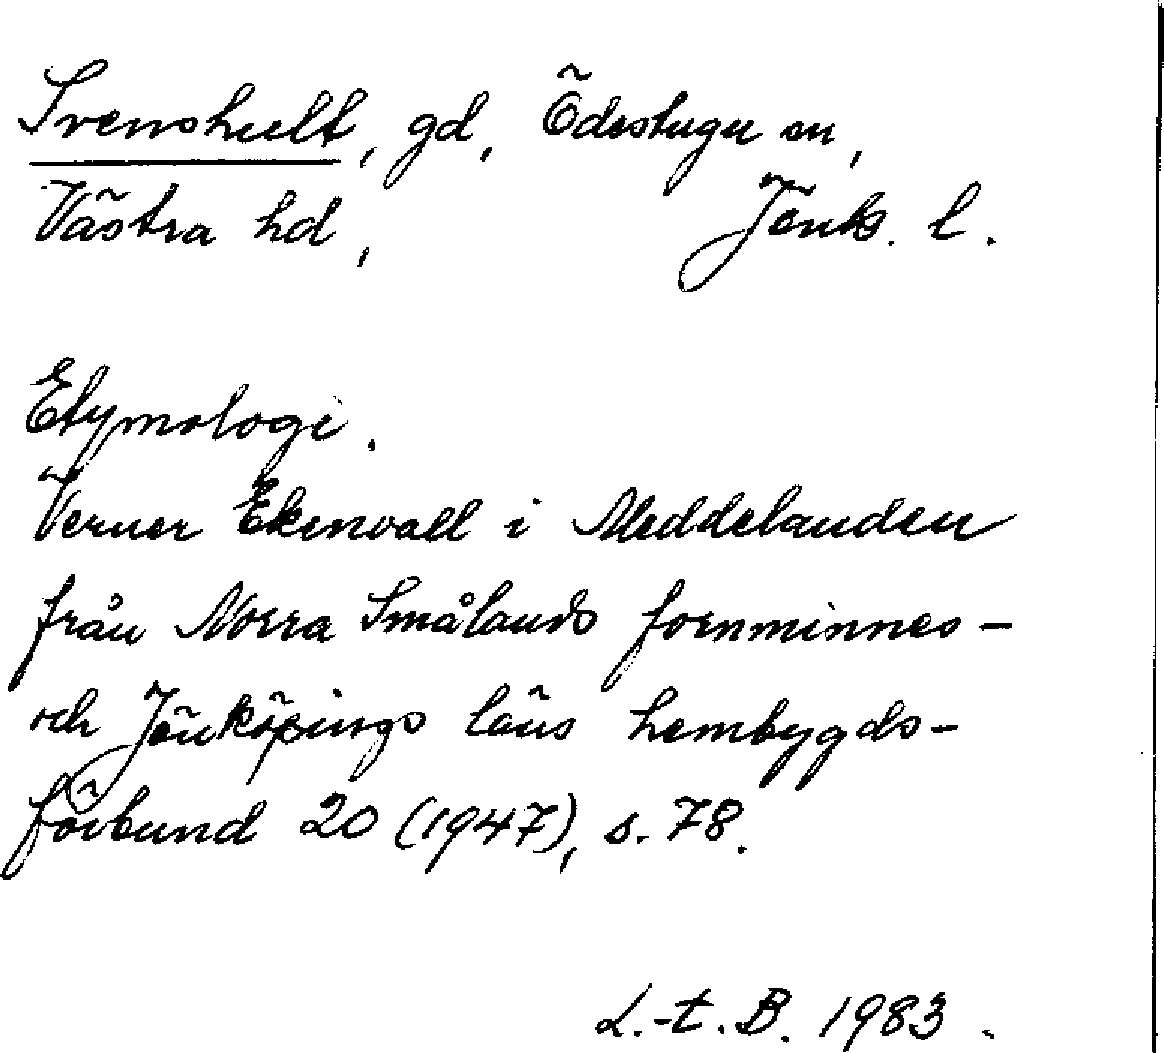 Svenshult, gd, Ödestugu sn,
Västra hd, Jönk. l.
Etymologi.
Verner Ekenvall i Meddelanden
från Norra Smålands fornminnes-
och Jönköpings läns hembygds-
förbund 20 (1947), s. 78.
L.-t. B. 1983.